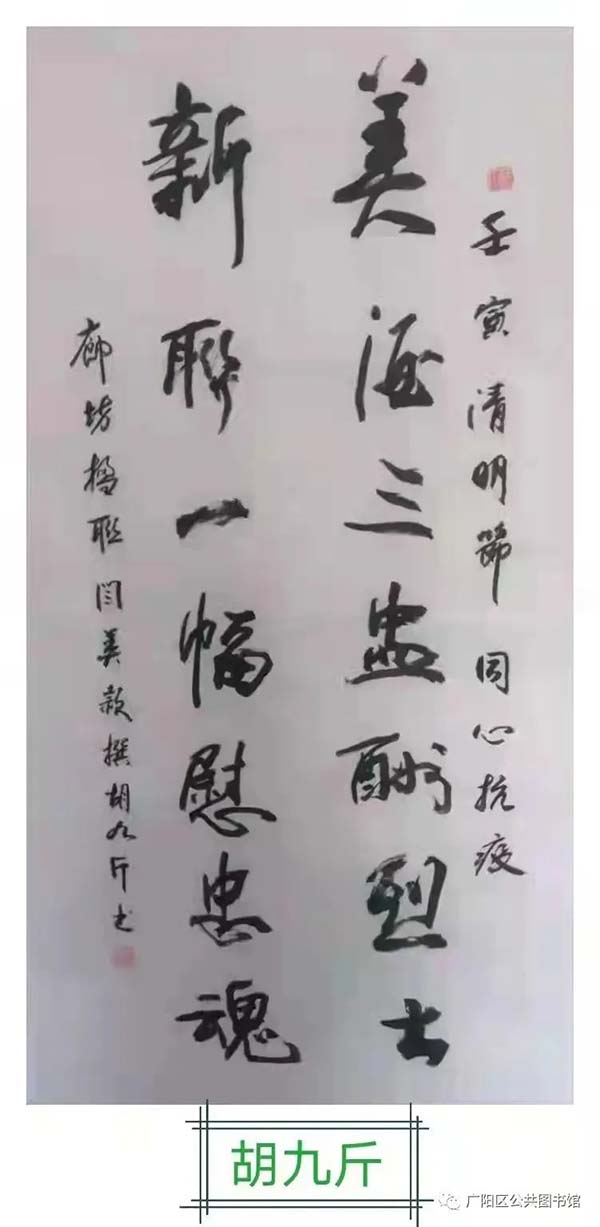 壬寅清明節同心抗疫
美酒三盅酬烈士
新聯一幅慰忠魂
廊坊楹联闫美款撰胡九斤书
胡九斤
广阳区公共图书馆